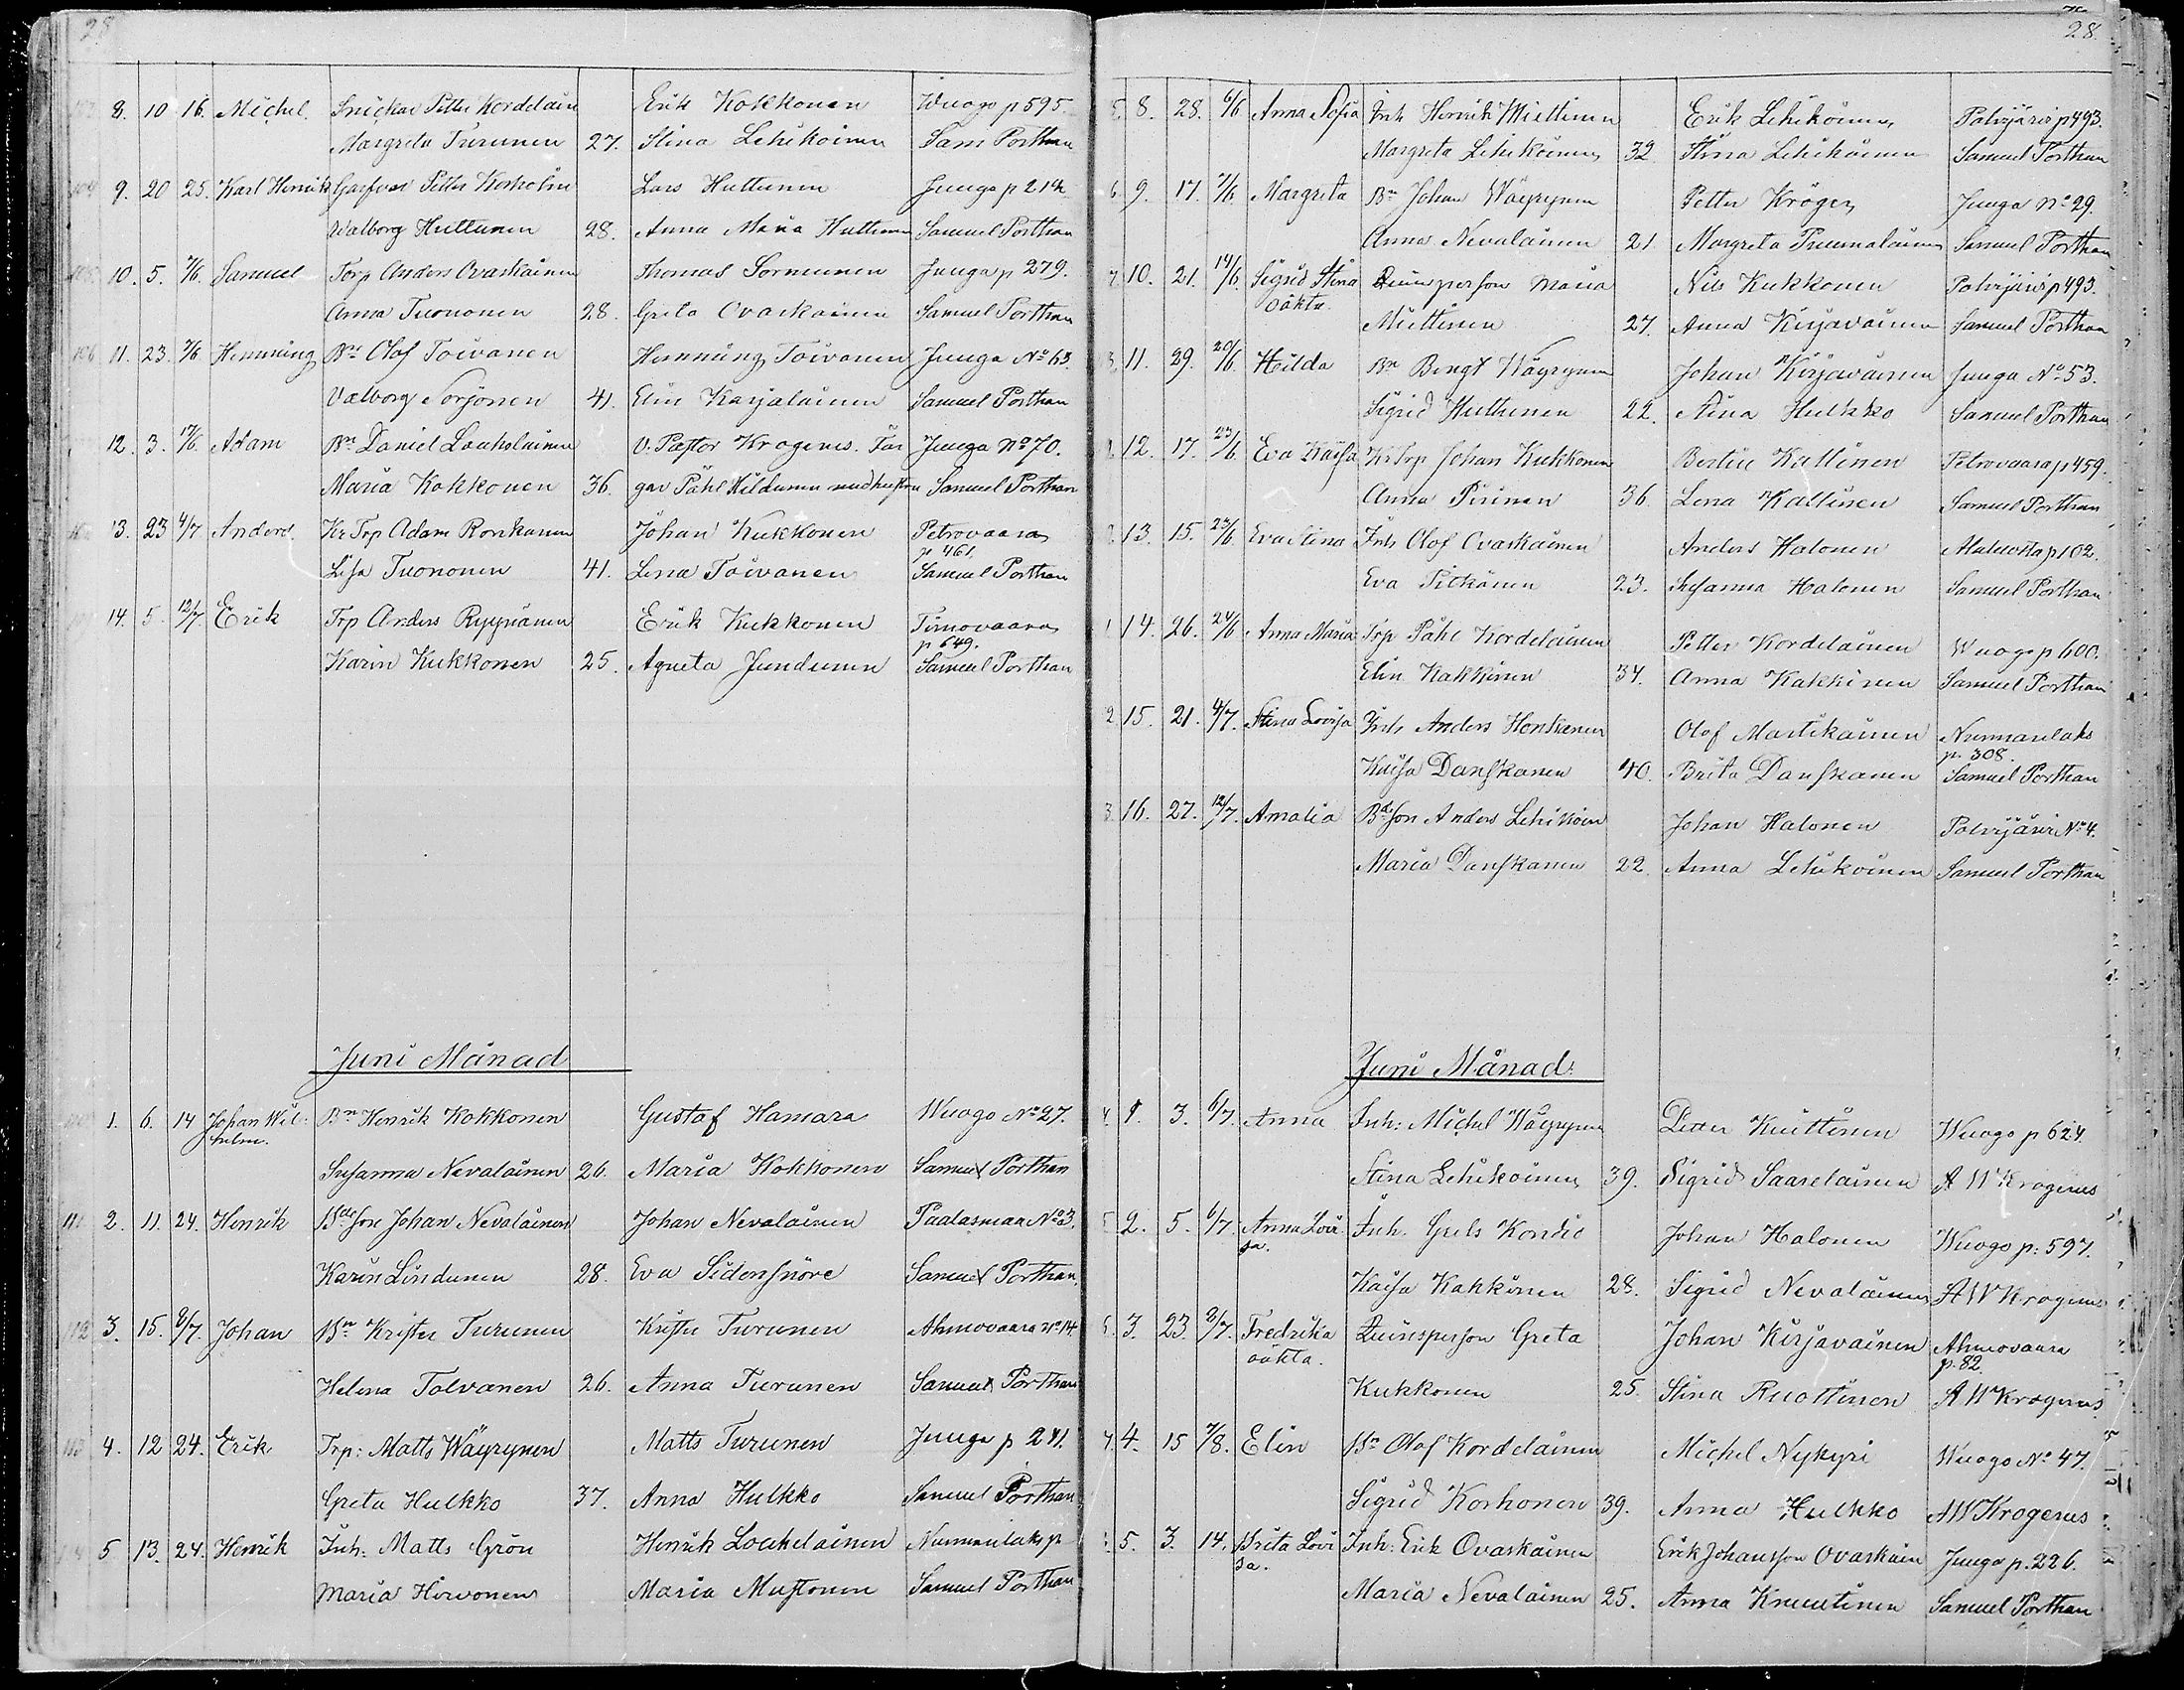 28
8. 10 16. Michel. Snickar Petter Kordelain Erik Kokkonen Wuogo p 595.
Margreta Turunen 27. Stina Lehikoinen Sam Porthan
104 9. 20 25. Karl Henrik Petter Lars Huttunen Juuga p 214
Walborg Huttunen 28. Anna Maria Huttunen Samuel Porthan
10. 5. 7/6. Samuel Torp Anders Ovaskainen Thomas Sormunen Juuga p 279.
Anna Tuononen 28. Greta Ovaskainen Samuel Porthan
106 11. 23. 7/6 Hemming Bn Olof Toivanen Hemming Toivanen Juuga No 63.
Valborg Sorjonen 41. Elin Karjalainen Samuel Porthan
12. 3. 17/6 Adam Bn Daniel Loukolainen V. Pastor Krogerus. Juuga No 70.
Maria Kokkonen 36. Påhl Hildunen med hustru Samuel Porthan
13. 23 4/7 Anders. Kr Trp Adam Ronkanen Johan Kukkonen Petrovaara
p 461.
Lisa Tuononen 41. Lena Toivanen Samuel Porthan
14. 5. 12/7. Erik Trp Anders Ryynänen Erik Kukkonen Timovaara
p 649.
Karin Kukkonen 25. Agneta Jundunen Samuel Porthan
Juni Månad
1. 6. 14 Johan Wil- Bn Henrik Kokkonen Gustaf Hamara Wuogo No 27.
helm.
Susanna Nevalainen 26. Maria Kokkonen Samuel Porthan
111 2. 11. 24. Henrik Bdeson Johan Nevalainen Johan Nevalainen Paalasmaa No 3.
Karin Lindunen 28. Eva Sidensnöre Samuel Porthan.
112 3. 15. 8/7. Johan Bn Krister Turunen Krister Turunen Ahmovaara No 14.
Helena Tolvanen 26. Anna Turunen Samuel Porthan
113 4. 12 24. Erik Trp: Matts Wäyrynen Matts Turunen Juuga p 241.
Greta Hulkko 37. Anna Hulkko Samuel Porthan
5 13. 24. Henrik Inh: Matts Grön Henrik Loukelainen Nunnanlaks p
Maria Hirvonen Maria Mustonen Samuel Porthan
28.
8. 28. 6/6 Anna Sofia Inh Henrik Miettinen Erik Lehikoinen Polvijärvi p 493.
Margreta Lehikoinen 32. Stina Lehikoinen Samuel Porthan
6 9. 17. 7/6 Margreta Bn Johan Wäyrynen Petter Kröger Juuga No 29.
Anna Nevalainen 21. Margreta Samuel Porthan
7. 10. 21. 14/6. Sigrid Stina Quinsperson Maria Nils Kukkonen Polvijärvi p 493.
oäkta
Miettinen 27. Anna Kirjavainen Samuel Porthan
11. 29. 20/6. Hilda Bn Bengt Wäyrynen Johan Kirjavainen Juuga No 53.
Sigrid Huttunen 22. Stina Hulkko Samuel Porthan
12. 17. 23/6 Eva Kaisa Kr Trp Johan Kukkonen Bertil Kattinen Petrovaara p 459.
Anna Piirinen 36. Lena Kattinen Samuel Porthan
13. 15. 23/6. Eva Stina Inh Olof Ovaskainen Anders Halonen p 102.
Eva Pitkänen 23. Susanna Halonen Samuel Porthan
14. 26. 24/6 Anna Maria Trp Påhl Kordelainen Petter Kordelainen Wuogo p 600.
Elin Kakkinen 34. Anna Kakkinen Samuel Porthan
2. 15. 21. 4/7. Stina Lovisa Inh Anders Honkanen Olof Martikainen Nunnanlaks
p. 308.
Kaisa Danskanen 40. Brita Danskanen Samuel Porthan
3. 16. 27. 12/7. Amalia Bdeson Anders Lehikoin Johan Halonen Polvijärvi No 4.
Maria Danskanen 22. Anna Lehikoinen Samuel Porthan
Juni Månad:
4. 1. 3. 6/7. Anna Inh: Michel Wäyrynen Petter Knuttinen Wuogo p 624.
Stina Lehikoinen 39. Sigrid Saarelainen A W Krogerus
5 2. 5. 6/7. Anna Lovi Inh. Grels Kondie Johan Halonen Wuogo p: 597.
sa.
Kaisa Kakkinen 28. Sigrid Nevalainen A W Krogerus
6. 3. 23. 8/7. Fredrika Quinsperson Greta Johan Kirjavainen Ahmovaara
oäkta. p. 82
Kukkonen 25. Stina Ruottinen A W Krogerus
7 4. 15 7/8. Elin Bn Olof Kordelainen Michel Nykyri Wuogo No 47.
Sigrid Korhonen 39. Anna Hulkko A W Krogerus
5. 3. 14. Brita Lovi Inh: Erik Ovaskainen Erik Johansson Ovaskain Juuga p. 226.
sa.
Maria Nevalainen 25. Anna Knuutinen Samuel Porthan